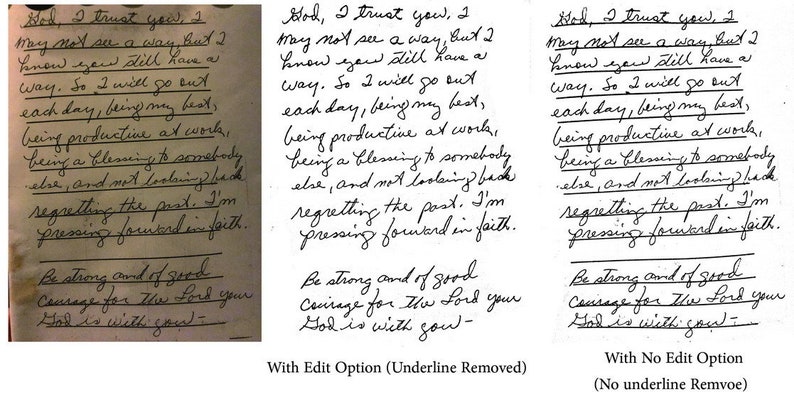 God, I trust you. I
may not see a way, but I
know you still have a
way. So I will go out
each day, being my best,
being productive at work,
being a blessing to somebody
else, and not looking back
regretting the past. I'm
pressing forward in faith.
Be strong and of good
courage for the Lord your
God is with you -
God, I trust you. I
may not see a way, but I
know you still have a
way. So I will go out
each day, being my best,
being productive at work,
being a blessing to somebody
else, and not looking back
regretting the past. I'm
pressing forward in faith.
Be strong and of good
courage for the Lord your
God is with you -
With Edit Option (Underline Removed)
God, I trust you. I
may not see a way, but I
know you still have a
way. So I will go out
each day, being my best,
being productive at work,
being a blessing to somebody
else, and not looking back
regretting the past. I'm
pressing forward in faith.
Be strong and of good
courage for the Lord your
God is with you -
With No Edit Option
(No underline Remvoe)